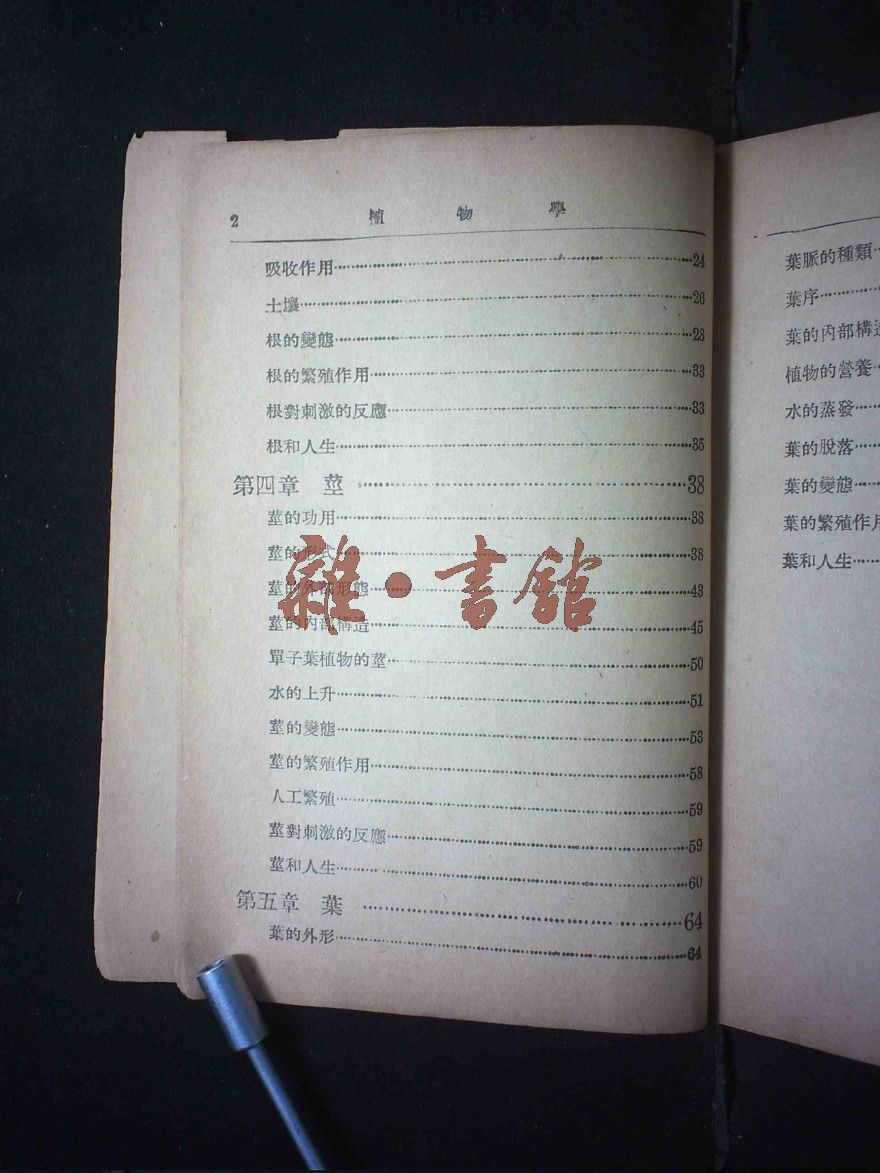 2 植物學
吸收作用……24
土壤……26
根的變態……28
根的繁殖作用……33
根對刺激的反應……33
根和人生……35
第四章 莖……38
莖的功用……38
莖的形式……38
莖的外部形態……43
莖的內部構造……45
單子葉植物的莖……50
水的上升……51
莖的變態……53
莖的繁殖作用……58
人工繁殖……59
莖對刺激的反應……59
莖和人生……60
第五章 葉……64
葉的外形……64
雜·書館
葉脈的種類……
葉序……
葉的內部構造
植物的營養……
水的蒸發……
葉的脫落……
葉的變態……
葉的繁殖作用
葉和人生……